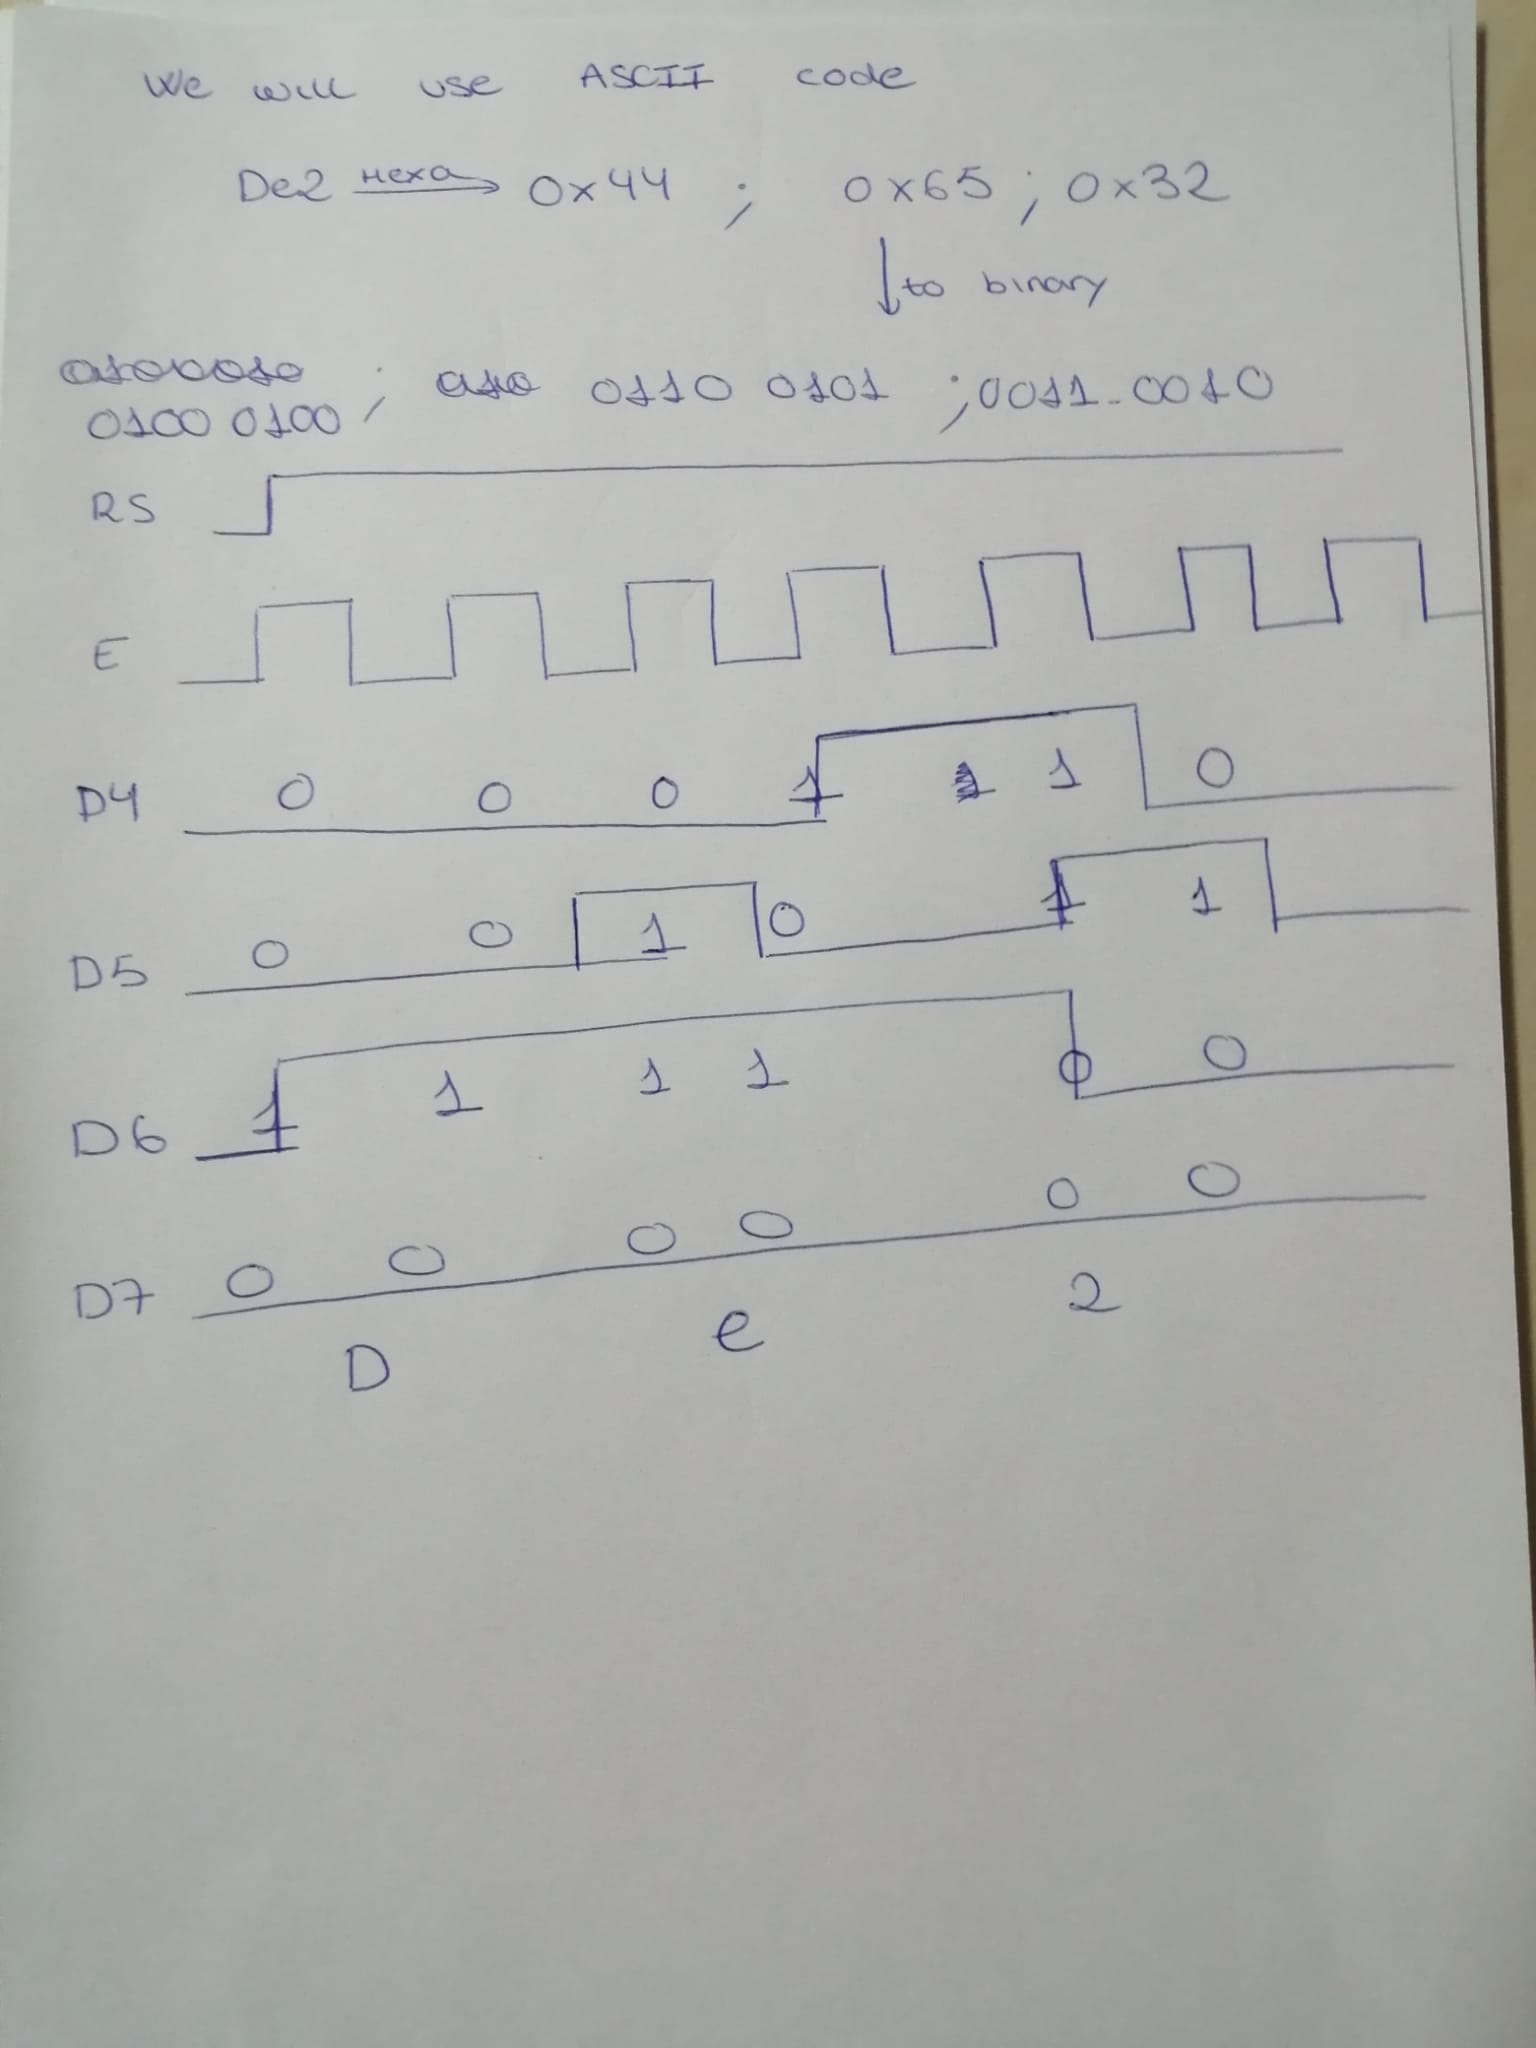 We will use ASCII code
De2 Hexa 0x44 ; 0x65 ; 0x32
to binary
0100 0100 ; 0110 0101 ; 0011-0010
RS
E
D4 0 0 0 1 1 0
D5 0 0 1 0 1 1
D6 1 1 1 1 0 0
D7 0 0 0 0 0 0
D e 2